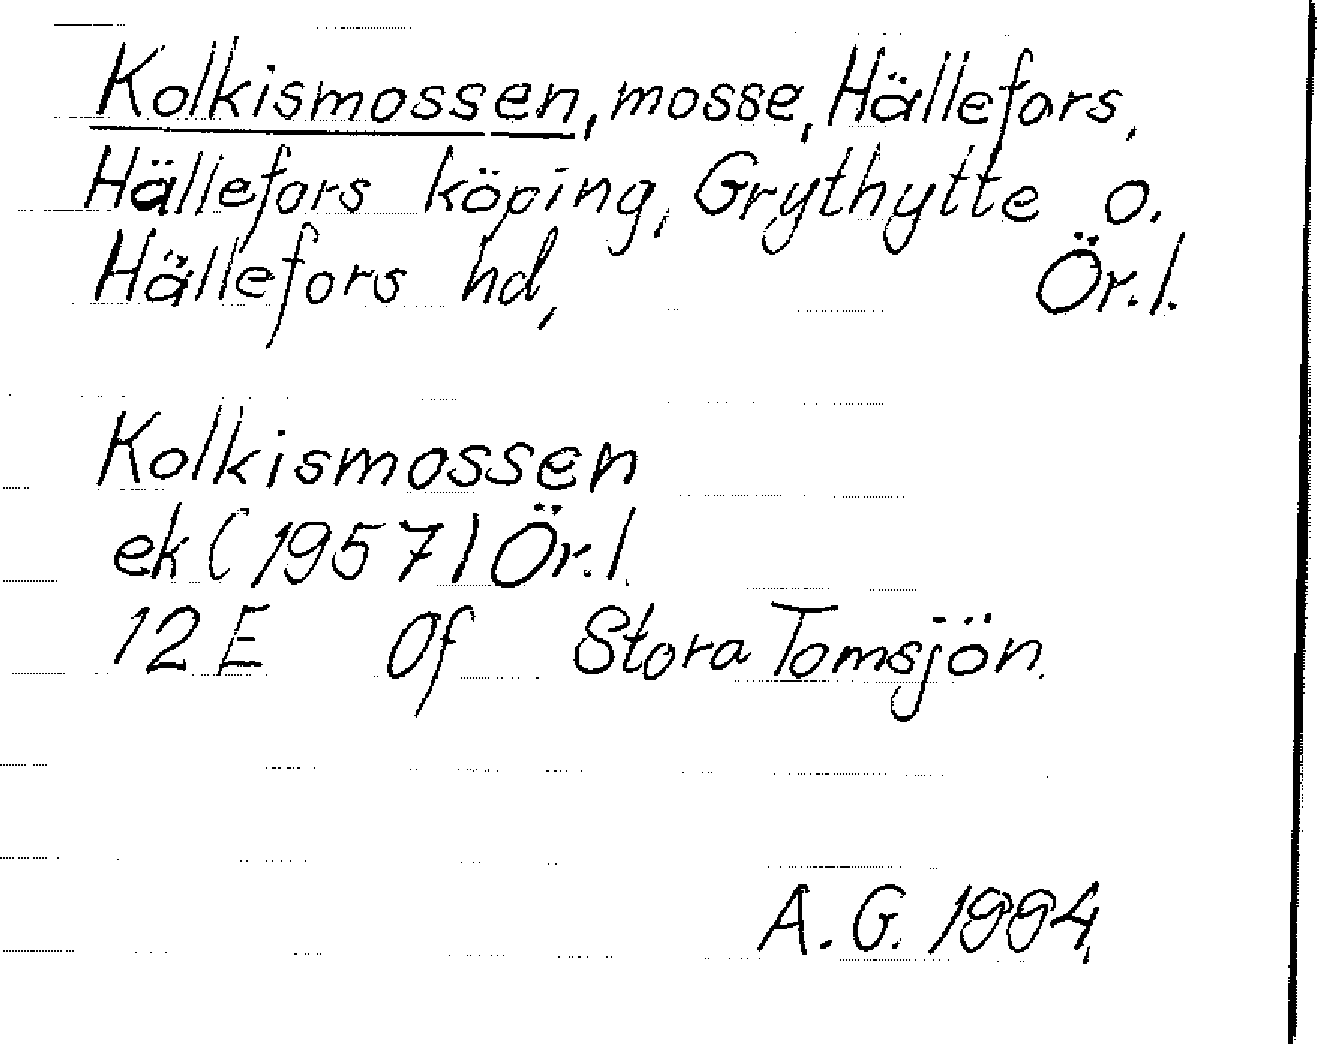 Kolkismossen, mosse, Hällefors,
Hällefors köping, Grythytte o.
Hällefors hd, Ör.l.
Kolkismossen
ek (1957) Ör.l.
12 E 0f Stora Tomsjön.
A.G. 1994,